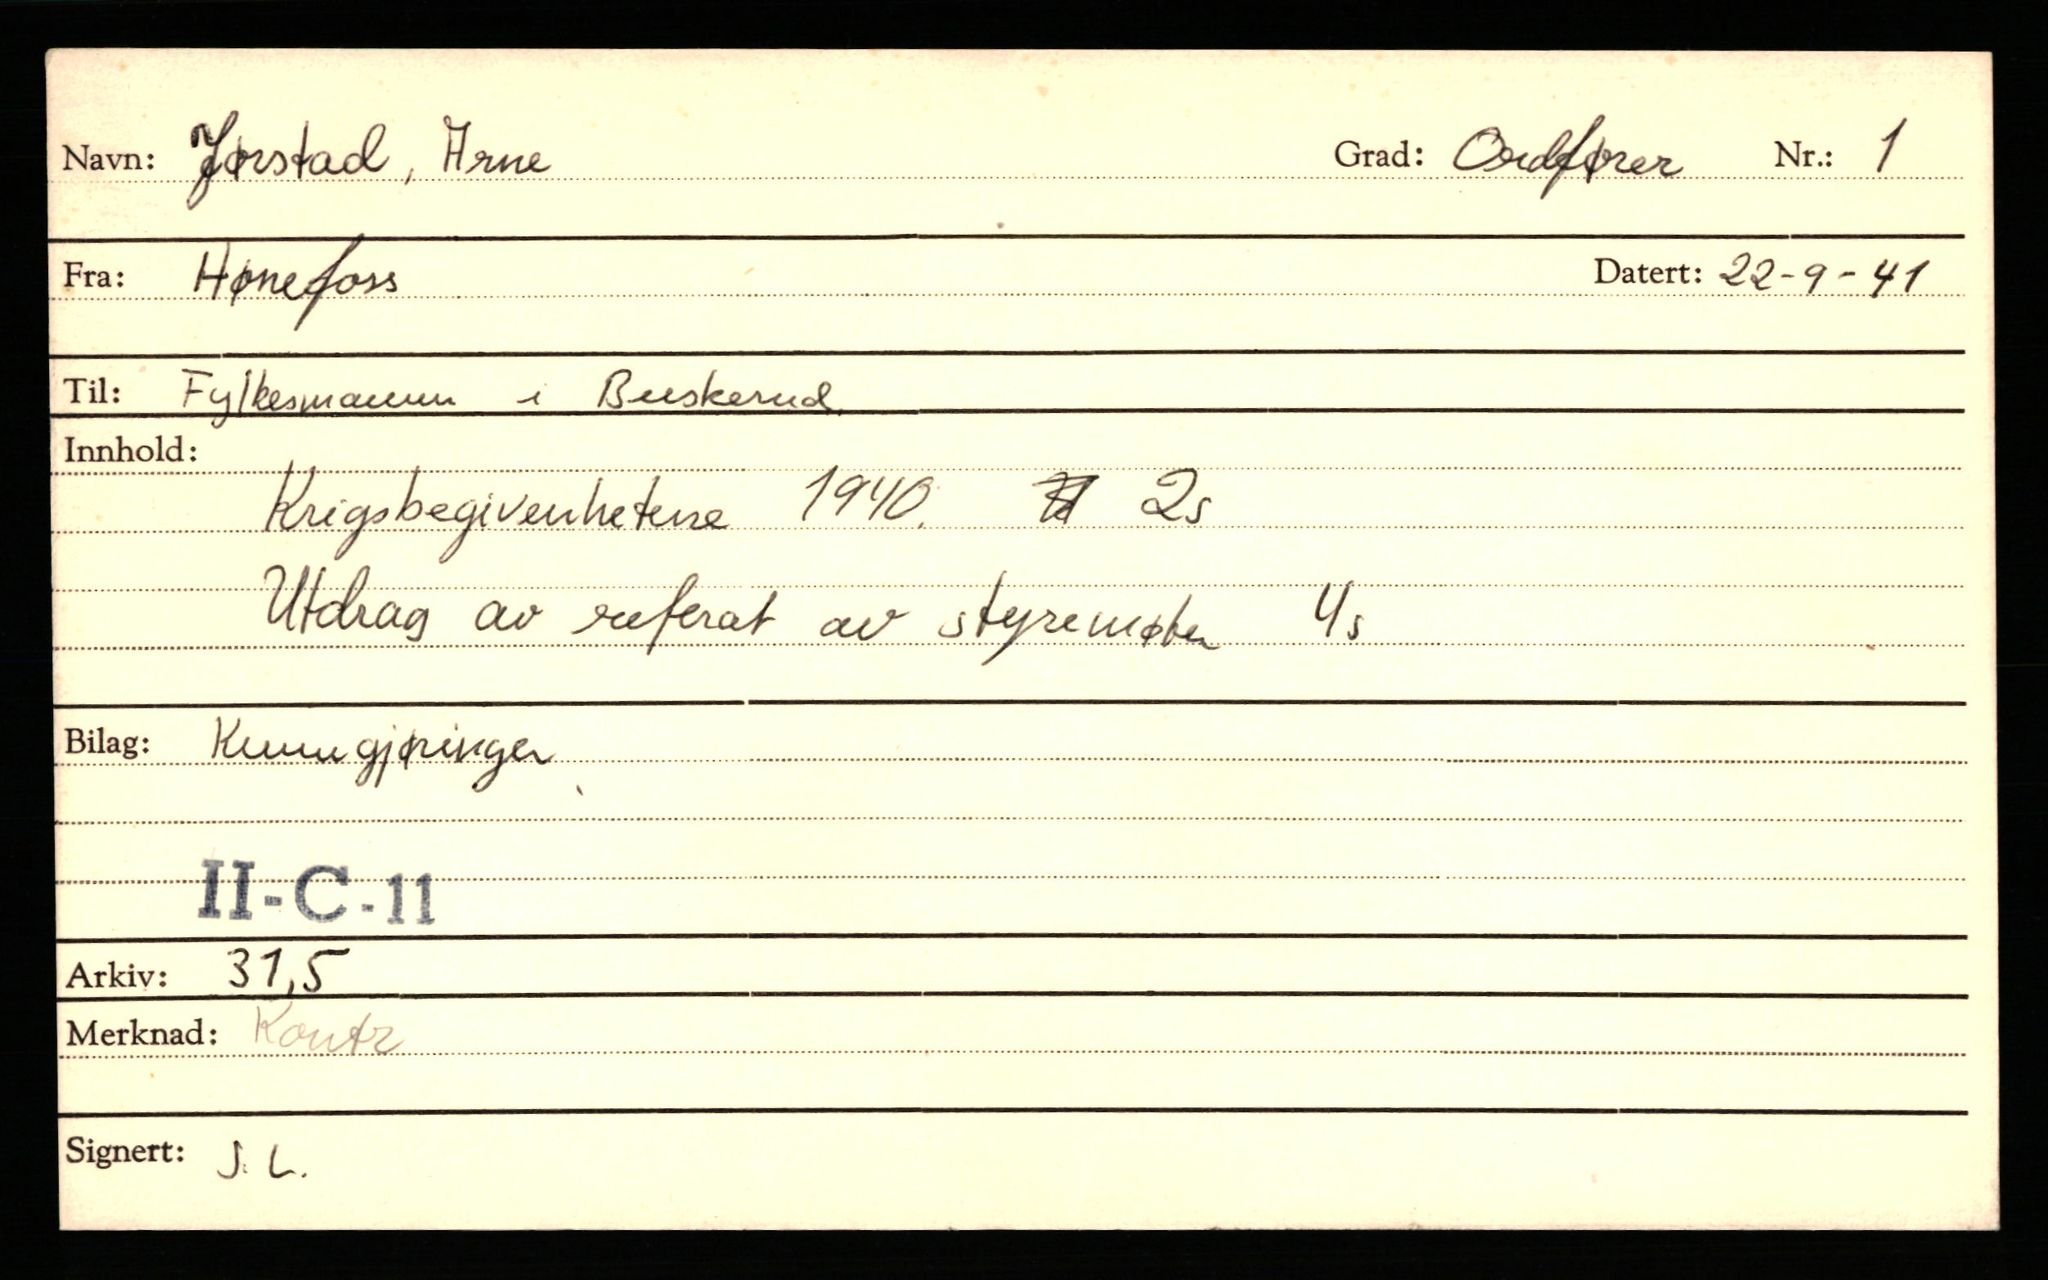 Navn: Jørstad, Arne Grad: Ordfører Nr.: 1
Fra: Hønefoss Datert: 22-9-41
Til: Fylkesmann i Buskerud.
Innhold:
Krigsbegivenhetene 1940. 2s
Utdrag av referat av styremøter 4s
Bilag: Kunngjøringer
II-C-11
Arkiv: 31,5
Merknad: Kontr
Signert: J. L.